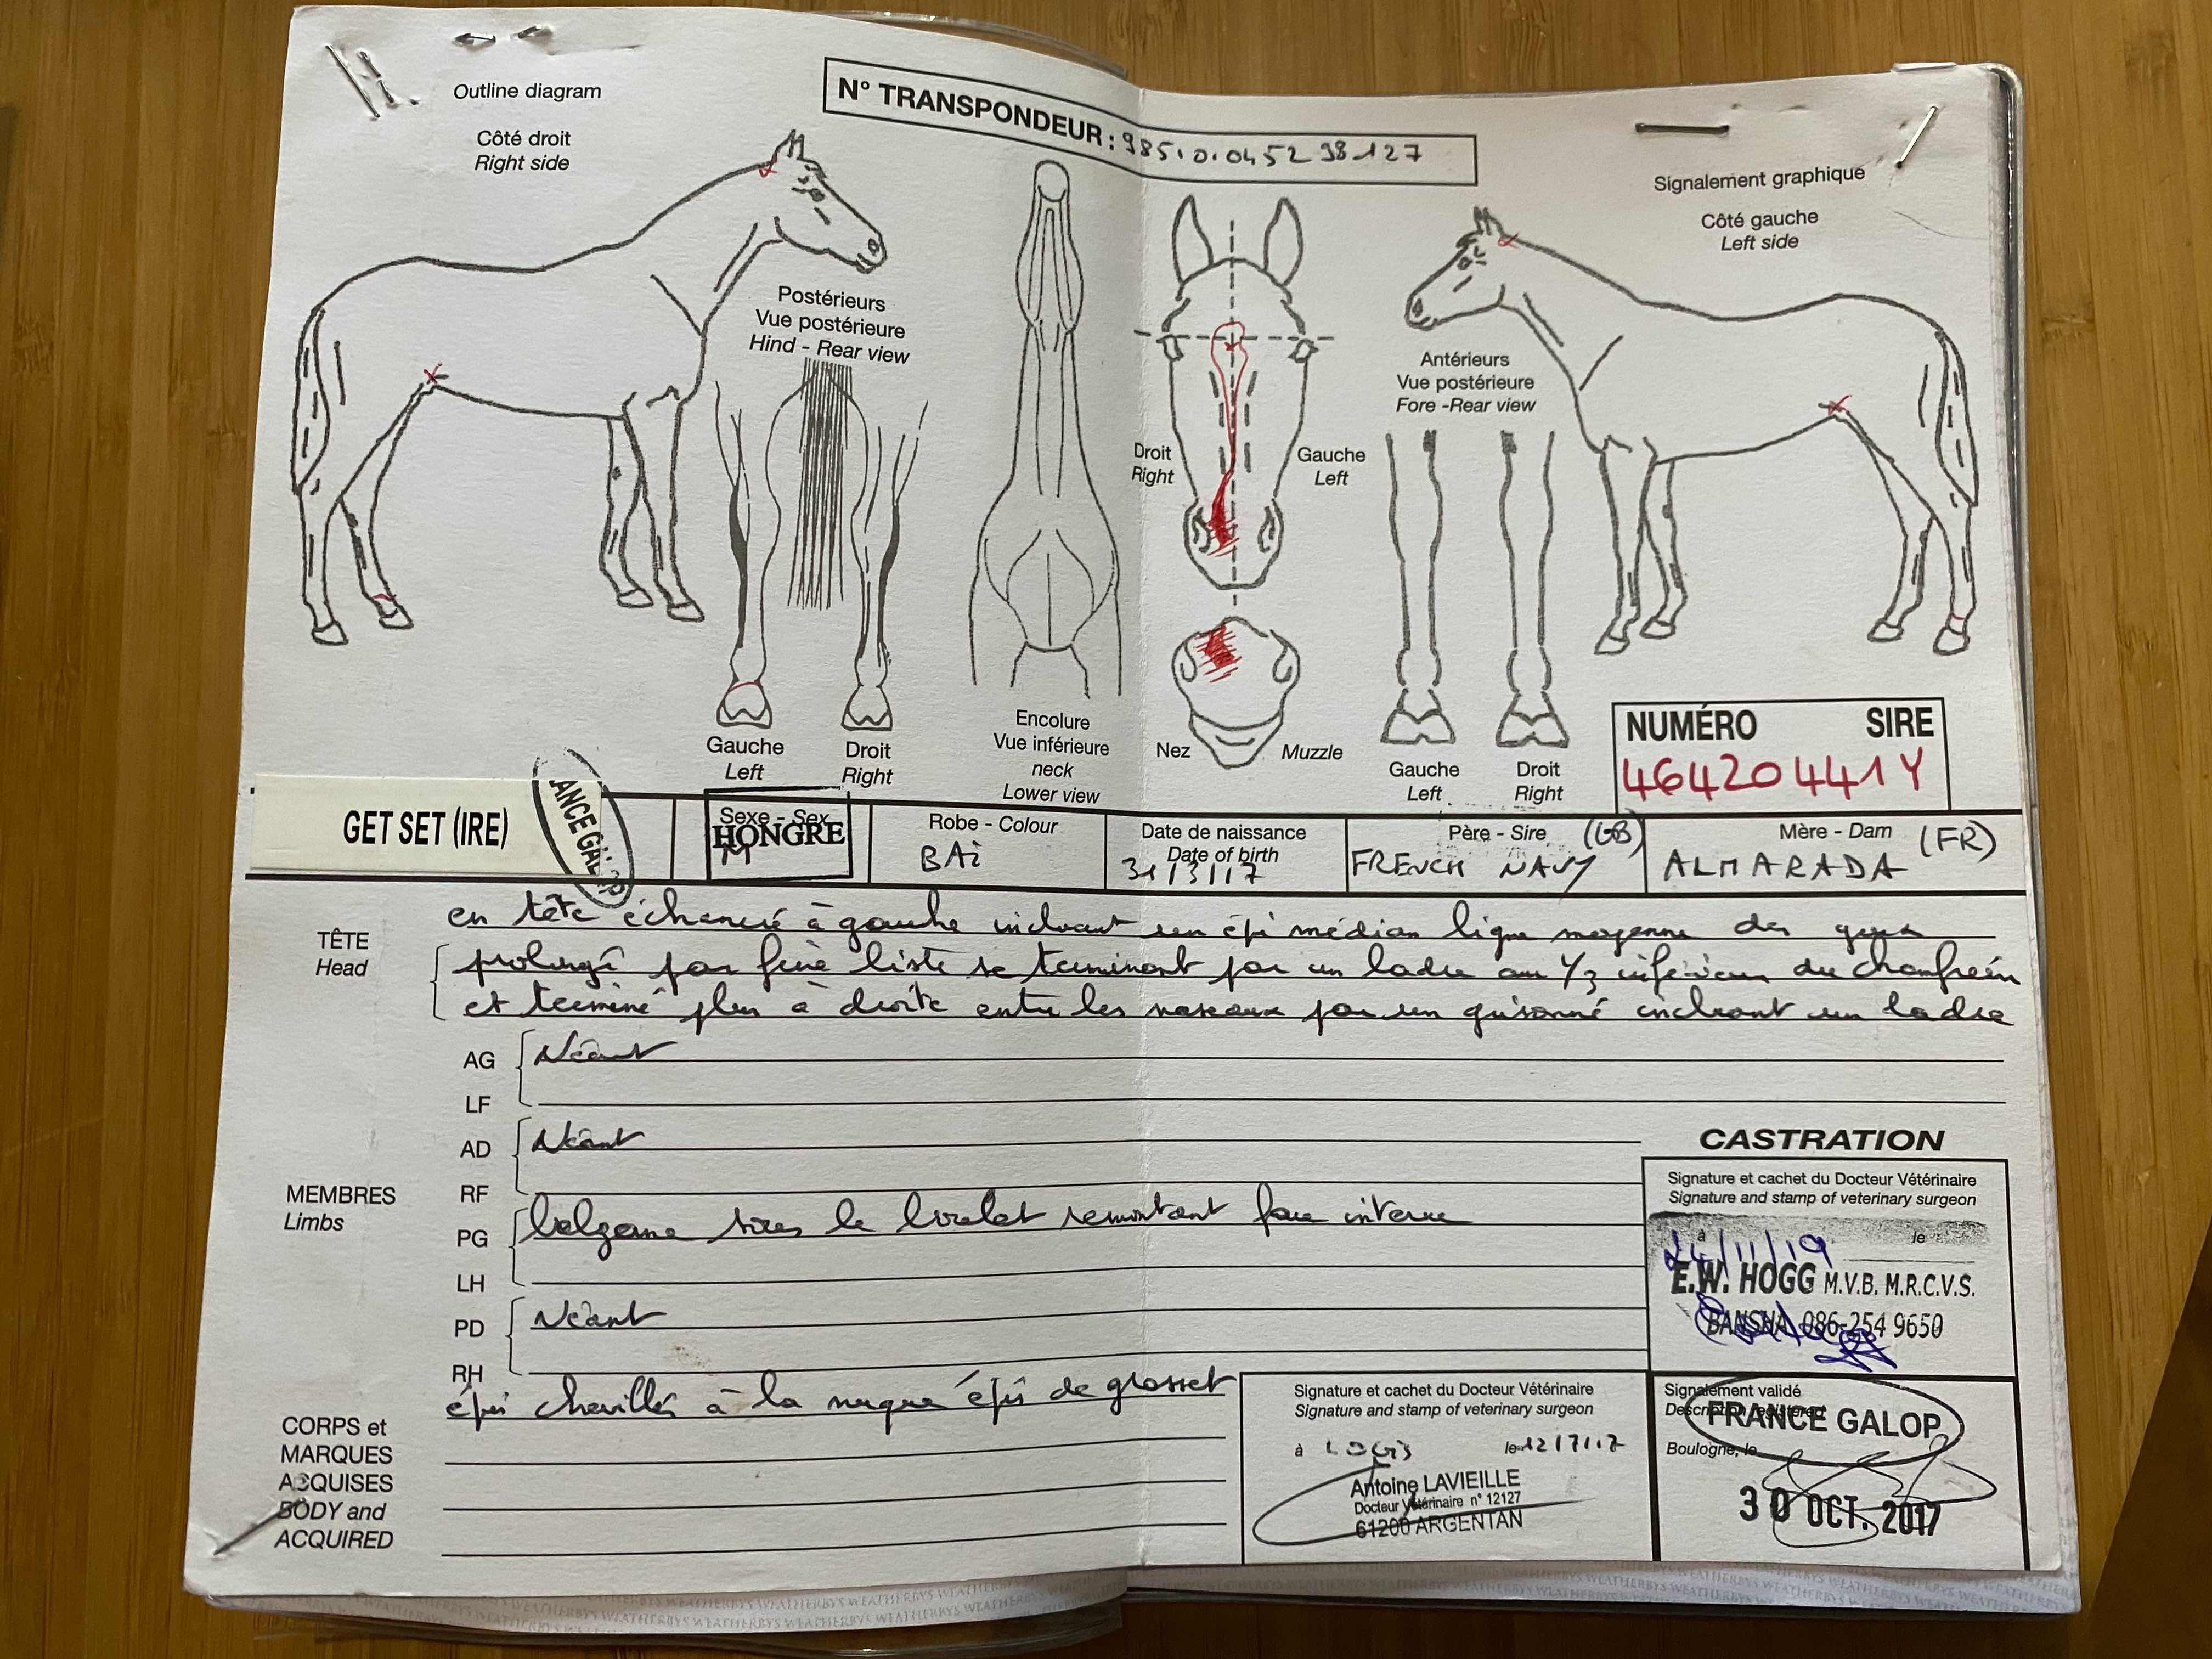 Outline diagram
Côté droit
Right side
N° TRANSPONDEUR : 985.0.0452 98127
Signalement graphique
Côté gauche
Left side
Postérieurs
Vue postérieure
Hind - Rear view
Antérieurs
Vue postérieure
Fore -Rear view
Droit
Right
Gauche
Left
Gauche
Left
Droit
Right
Encolure
Vue inférieure
neck
Lower view
Nez
Muzzle
Gauche
Left
Droit
Right
NUMÉRO SIRE
46420441Y
GET SET (IRE)
ANCE GAL
Sexe - Sex
HONGRE
M
Robe - Colour
BAi
Date de naissance
Date of birth
31/3/17
Père - Sire (GB)
FRENCH NAVY
Mère - Dam (FR)
ALMARADA
TÊTE
Head
en tête échancré à gauche incluant un épi médian ligne moyenne des yeux
prolongé par fine liste se terminant par un ladre au 1/3 inférieur du chanfrein
et terminé plus à droite entre les naseaux par un grisonné incluant un ladre
MEMBRES
Limbs
AG
LF
Néant
AD
RF
Néant
PG
LH
balzane sous le boulet remontant face interne
PD
RH
Néant
CORPS et
MARQUES
ACQUISES
BODY and
ACQUIRED
épi chevillés à la nuque épis de grasset
CASTRATION
Signature et cachet du Docteur Vétérinaire
Signature and stamp of veterinary surgeon
à le
24/11/19
E.W. HOGG M.V.B. M.R.C.V.S.
BANSHA 086-254 9650
Signature et cachet du Docteur Vétérinaire
Signature and stamp of veterinary surgeon
à LOGIS le 12/7/17
Antoine LAVIEILLE
Docteur Vétérinaire n° 12127
61200 ARGENTAN
Signalement validé
Description registered
FRANCE GALOP
Boulogne, le
30 OCT. 2017
WEATHERBYS WEATHERBYS WEATHERBYS WEATHERBYS